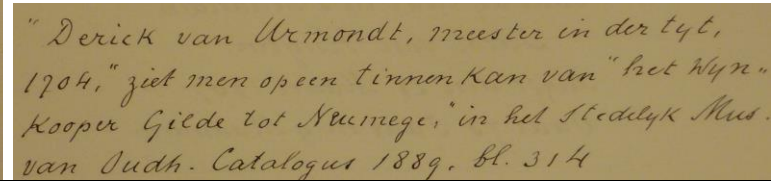 " Derick van Urmondt, meester in der tyt,
1704," ziet men op een tinnen kan van "het Wyn-
kooper Gilde tot Neumege," in het Stedelyk Mus.
van Oudh. Catalogus 1889. bl. 314